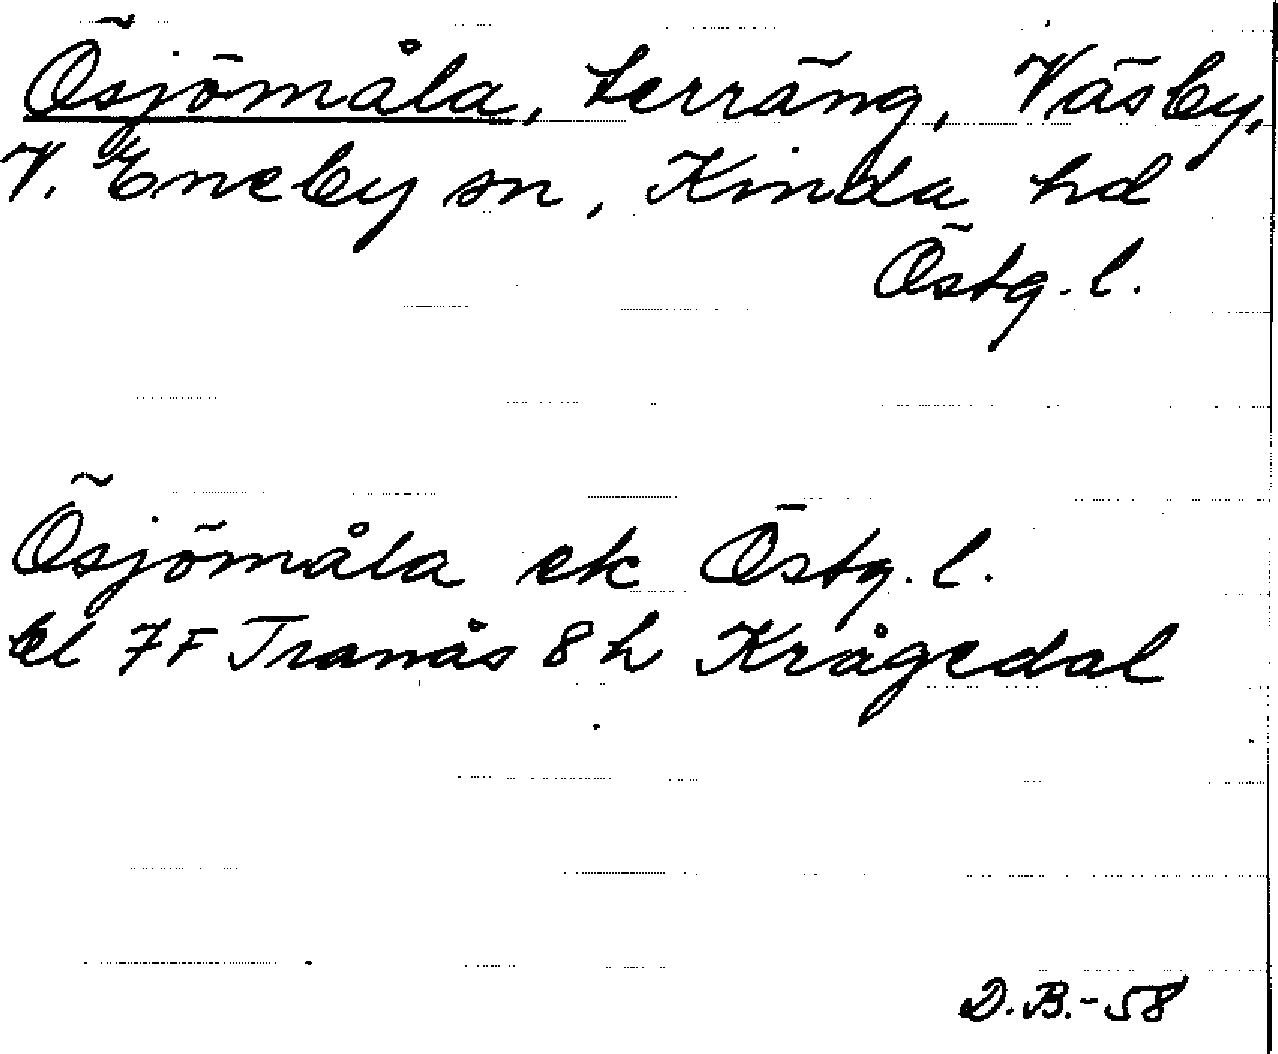 Ösjömåla, terräng, Väsby,
V. Eneby sn, Kinda hd
Östg. l.
Ösjömåla ek Östg. l.
bl 7F Tranås 8 h Krågedal
D.B.-58